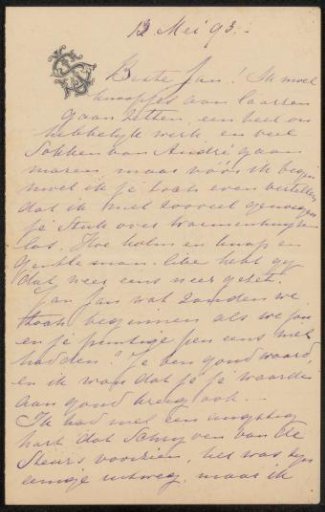 13 Mei 93.
Beste Jan! Ik moet
knoopjes aan laarzen
gaan zetten, een heel on
hebbelijk werk en veel
Sokken van André gaan
mazen, maar vóór ik begin
moet ik je toch even vertellen
dat ik met zooveel genoegen
je Stuk over
las. Hoe kalm en knap en
gentleman-like hebt gij
dat weer eens neer gezet.
Jan Jan wat zouden we
toch beginnen als we jou
en je puntige pen eens niet
hadden? Je ben goud waard,
en ik wou dat je je waarde
aan goud kreeg ook.
Ik had met een angstig
hart dat Schrijven van de
Steurs voorzien, het was zijn
eenige uitweg, maar ik